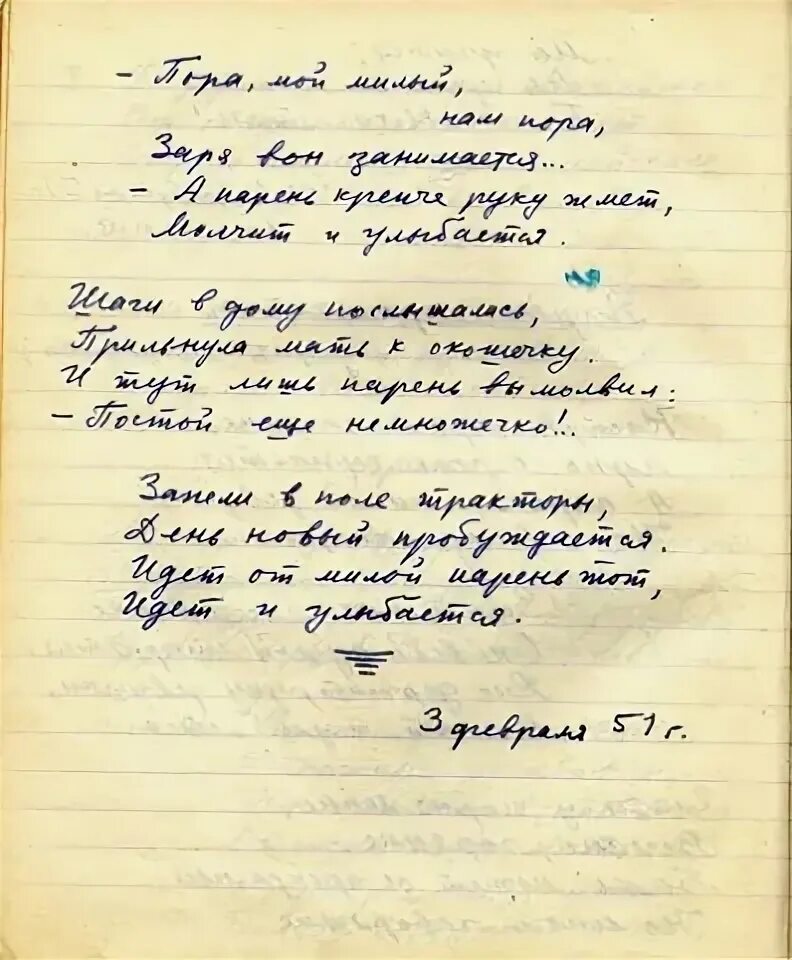 – Пора, мой милый,
нам пора,
Заря вон занимается...
– А парень крепче руку жмет,
Молчит и улыбается.
ня
Шаги в дому послышалась,
Прильнула мать к окошечку.
И тут лишь парень вымолвил:
– Постой еще немножечко!..
Запели в поле тракторы,
День новый пробуждается.
Идет от милой парень тот,
Идет и улыбается.
3 февраля 51 г.